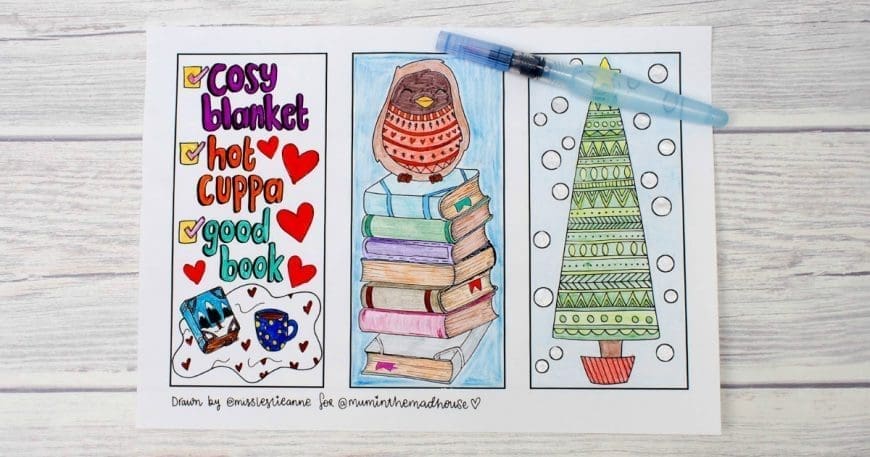 cosy
blanket
hot
cuppa
good
book
Drawn by @missleslieanne for @muminthemadhouse